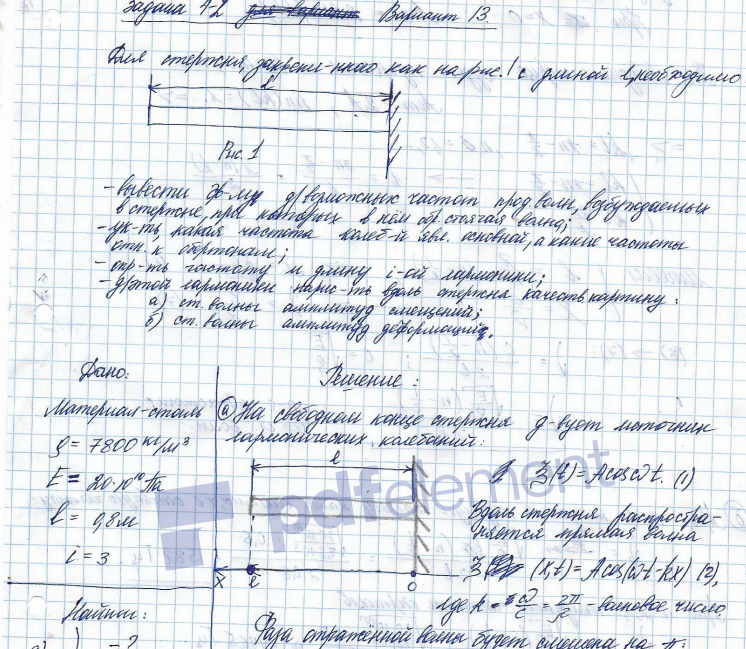 Задача 1-2 для вариант Вариант 13.
Для стержня, закрепл-нного как на рис. 1 с длиной l, необходимо
l
Рис. 1
- вывести ф-лу д/возможных частот прод волн, возбуждаемых
в стержне, при которых в нём обр. стоячая волна;
- ук-ть, какая частота колеб-й явл. основной, а какие частоты
отн. к обертонам;
- опр-ть частоту и длину i-ой гармоники;
- д/этой гармоники нарис-ть вдоль стержня качеств картину:
а) ст. волны амплитуд смещений;
б) ст. волны амплитуд деформаций.
Дано:
Материал-сталь
ρ = 7800 кг/м³
E = 20·10¹⁰ Па
l = 0,8м
i = 3
Найти:
Решение:
а) На свободном конце стержня д-вует источник
гармонических колебаний:
l
ξ(t) = A cos ωt. (1)
Вдоль стержня распростра-
няется прямая волна
x l 0
ξ (x,t) = A cos(ωt - kx) (2),
где k = ω/c = 2π/λ - волновое число
Фаза отражённой волны будет смещена на π:
pdfelement